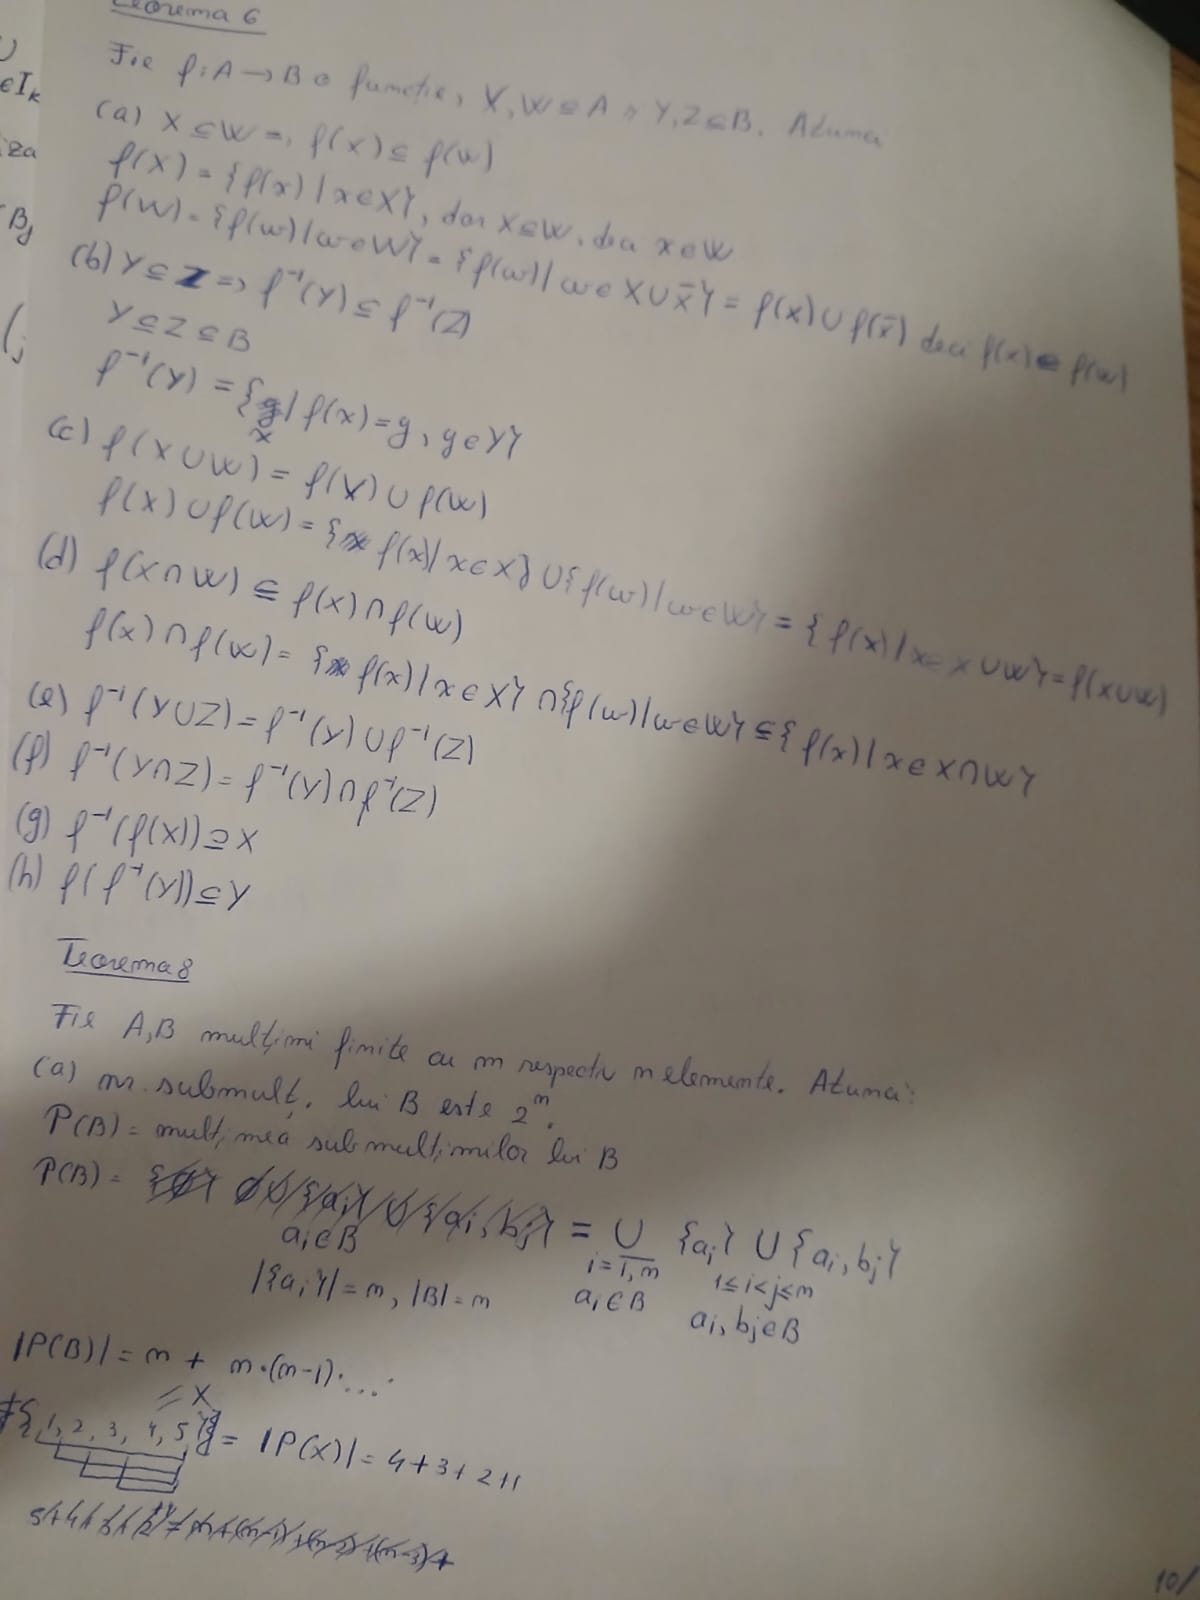 Teorema 6
Fie f:A→B o funcție, X,W⊆A și Y,Z⊆B. Atunci
(a) X⊆W ⇒ f(X)⊆f(W)
f(X) = {f(x) | x∈X}, dar X⊆W, deci x∈W
f(W) = {f(w) | w∈W} = {f(w) | w∈X∪X̄} = f(X)∪f(X̄) deci f(X)⊆f(W)
(b) Y⊆Z ⇒ f⁻¹(Y)⊆f⁻¹(Z)
Y⊆Z⊆B
f⁻¹(Y) = {x | f(x)=y, y∈Y}
(c) f(X∪W) = f(X)∪f(W)
f(X)∪f(W) = {f(x) | x∈X}∪{f(w) | w∈W} = {f(x) | x∈X∪W} = f(X∪W)
(d) f(X∩W) ⊆ f(X)∩f(W)
f(X)∩f(W) = {f(x) | x∈X}∩{f(w) | w∈W} ⊆ {f(x) | x∈X∩W}
(e) f⁻¹(Y∪Z) = f⁻¹(Y)∪f⁻¹(Z)
(f) f⁻¹(Y∩Z) = f⁻¹(Y)∩f⁻¹(Z)
(g) f⁻¹(f(X))⊇X
(h) f(f⁻¹(Y))⊆Y
Teorema 8
Fie A,B mulțimi finite cu m respectiv n elemente. Atunci:
(a) nr. submulț. lui B este 2ⁿ.
P(B) = mulțimea submulțimilor lui B
P(B) = = ∪ {aᵢ} ∪ {aᵢ, bⱼ}
aᵢ∈B i=1,n 1≤i<j≤n
|{aᵢ}| = n, |B| = n aᵢ∈B aᵢ, bⱼ∈B
|P(B)| = n + n·(n-1)·...
= X
{1, 2, 3, 4, 5} = |P(X)| = 4+3+2+1
10/
U
∈Iₖ
iza
Bⱼ